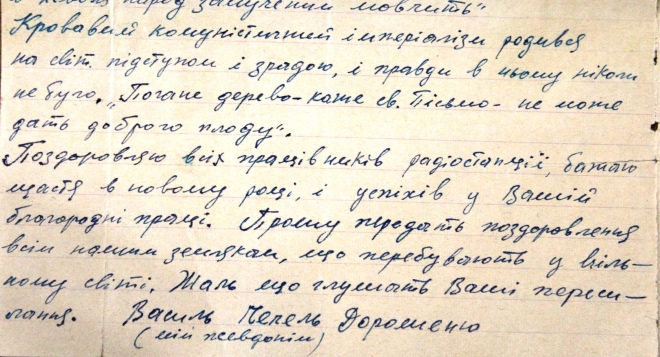 народ замучений мовчить"
Кровавий комуністичний імперіялізм родився
на світ підступом і зрадою, і правди в ньому ніколи
не було. „Погане дерево - каже св. Пісьмо - не може
дать доброго плоду".
Поздоровляю всіх працівників радіостанції, бажаю
щастя в новому році, і успіхів у Вашій
благородні праці. Прошу передать поздоровлення
всім нашим землякам, що перебувають у віль-
ному світі. Жаль що глушать Ваші переси-
лання. Василь Чепель Дорошенко
(мій псевдонім)